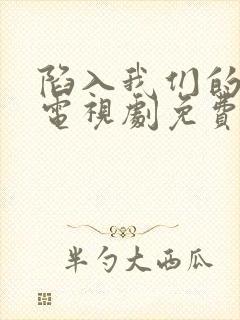 陷入我们的
電視劇免費
半勺大西瓜